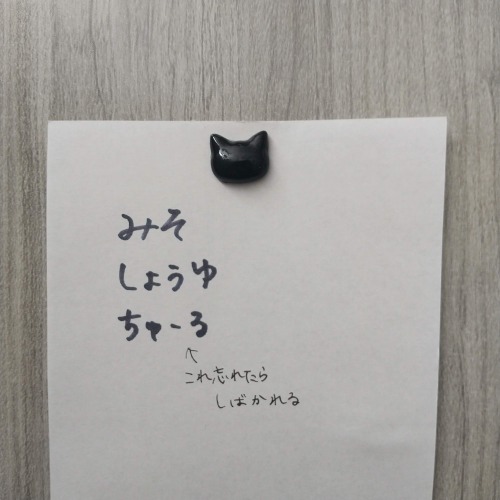 みそ
しょうゆ
ちゅーる
↑
これ忘れたら
しばかれる